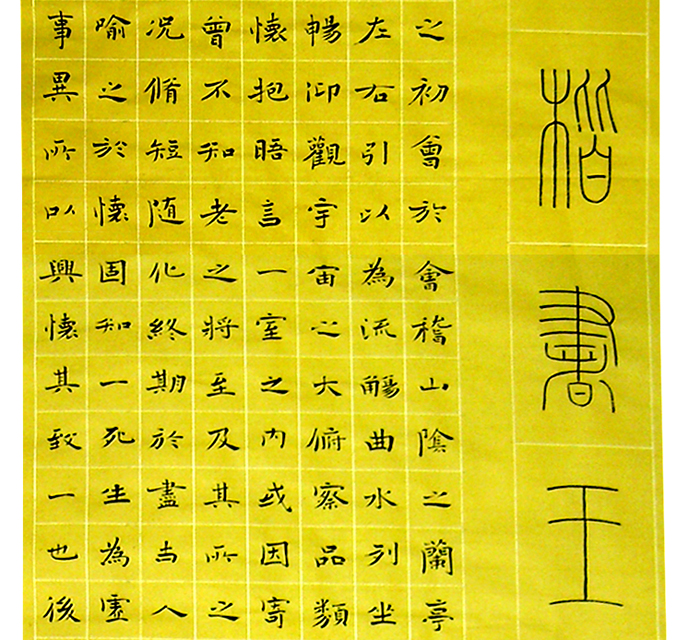 楷書王
之初會於會稽山陰之蘭亭
左右引以為流觴曲水列坐
暢仰觀宇宙之大俯察品類
懷抱晤言一室之內或因寄
曾不知老之將至及其所之
况脩短随化終期於盡古人
喻之於懷固知一死生為虛
事異所以興懷其致一也後